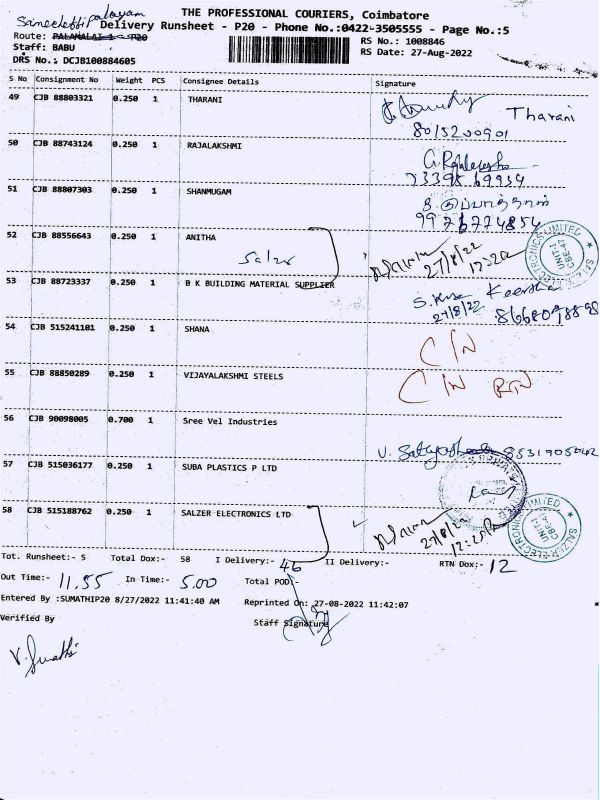 THE PROFESSIONAL COURIERS, Coimbatore
Delivery Runsheet - P20 - Phone No.:0422-3505555 - Page No.:5
Route: PALAMALAI 1 - P20
Staff: BABU
DRS No.: DCJB100884605
RS No.: 1008846
RS Date: 27-Aug-2022
S No Consignment No Weight PCS Consignee Details Signature
49 CJB 88803321 0.250 1 THARANI Tharani
8015200901
50 CJB 88743124 0.250 1 RAJALAKSHMI
51 CJB 88807303 0.250 1 SHANMUGAM
9976774854
52 CJB 88556643 0.250 1 ANITHA
Salzer 27/8/22 12:20
SALZER ELECTRONICS LIMITED UNIT-1 CBE-47
53 CJB 88723337 0.250 1 B K BUILDING MATERIAL SUPPLIER
27/8/22
54 CJB 515241101 0.250 1 SHANA C/N
55 CJB 88850289 0.250 1 VIJAYALAKSHMI STEELS C/N RTN
56 CJB 90098005 0.700 1 Sree Vel Industries
57 CJB 515036177 0.250 1 SUBA PLASTICS P LTD
58 CJB 515188762 0.250 1 SALZER ELECTRONICS LTD
27/8/22
SALZER ELECTRONICS LIMITED UNIT-1
Tot. Runsheet:- 5 Total Dox:- 58 I Delivery:- 46 II Delivery:- RTN Dox:- 12
Out Time:- 11.55 In Time:- 5.00 Total POD:-
Entered By :SUMATHIP20 8/27/2022 11:41:40 AM Reprinted On: 27-08-2022 11:42:07
Verified By Staff Signature